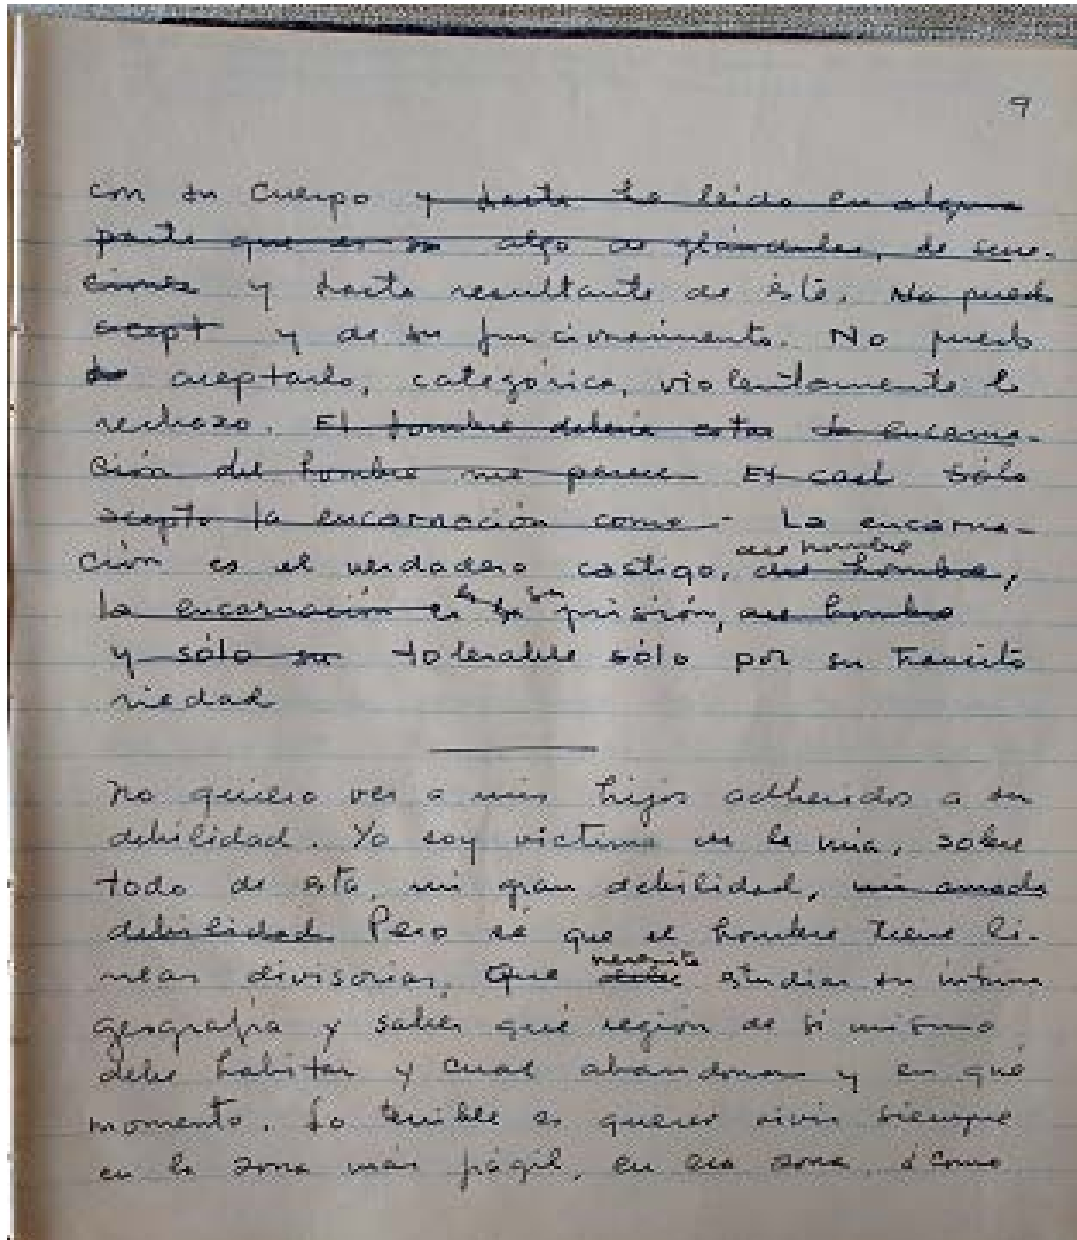 9
con su cuerpo y hasta he leído en alguna
parte que es un algo de glándulas, de secre-
ciones y hasta resultante de éste. No puedo
acept y de su funcionamiento. No puedo
aceptarlo, categórica, violentamente lo
rechazo. El hombre debería estar la encarna-
ción del hombre me parece El casti Sólo
acepto la encarnación como - La encarna-
del hombre
ción es el verdadero castigo, del hombre,
es su
La encarnación es la prisión, del hombre
y sólo su tolerable sólo por su transito
riedad
No quiero ver a mis hijos adheridos a su
debilidad. Yo soy víctima de la mía, sobre
todo de ésta, mi gran debilidad, mi amada
debilidad Pero sé que el hombre tiene lí-
necesita
neas divisorias, Que debe estudiar su íntima
geografía y saber qué región de sí mismo
debe habitar y cual abandonar y en qué
momento. Lo terrible es querer vivir siempre
en la zona más frágil, en esa zona, ¿cómo